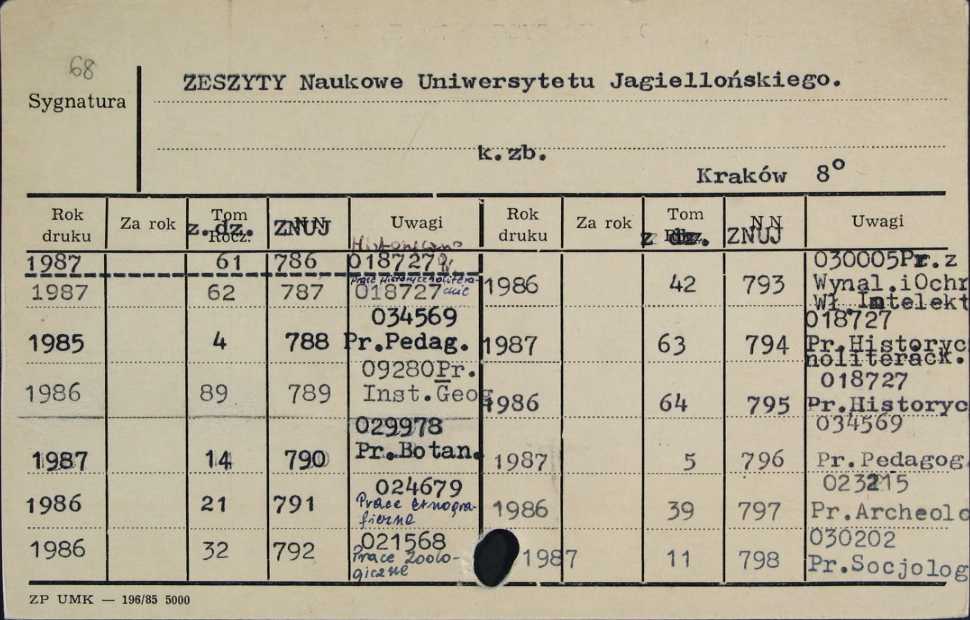 68
Sygnatura
ZESZYTY Naukowe Uniwersytetu Jagiellońskiego.
k.zb.
Kraków 8°
Rok druku Za rok Tom z.dz. Rocz. N N ZNUJ Uwagi
1987 61 786 018727
1987 62 787 018727
1985 4 788 034569 Pr.Pedag.
1986 89 789 09280Pr. Inst.Geog
1987 14 790 029978 Pr.Botan.
1986 21 791 024679 Prace etnogra- ficzne
1986 32 792 021568 Prace Zoolo- giczne
Rok druku Za rok Tom z dz. N N ZNUJ Uwagi
1986 42 793 030005Pr.z Wynal.iOchr Wł.Intelekt
1987 63 794 018727 Pr.Historyc noliterack.
1986 64 795 018727 Pr.Historyc
1987 5 796 034569 Pr.Pedagog
1986 39 797 023215 Pr.Archeolo
1987 11 798 030202 Pr.Socjolog
ZP UMK — 196/85 5000